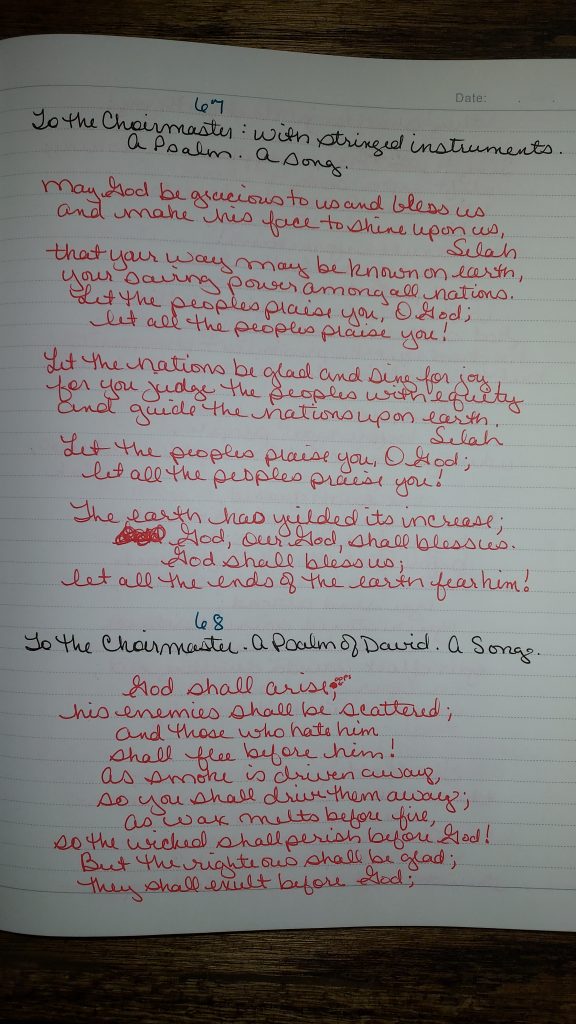 Date:
67
To the Choirmaster: with stringed instruments.
A Psalm. A Song.
May God be gracious to us and bless us
and make his face to shine upon us,
Selah
that your way may be known on earth,
your saving power among all nations.
Let the peoples praise you, O God;
let all the peoples praise you!
Let the nations be glad and sing for joy,
for you judge the peoples with equity
and guide the nations upon earth.
Selah
Let the peoples praise you, O God;
let all the peoples praise you!
The earth has yeilded its increase;
God, our God, shall bless us.
God shall bless us;
let all the ends of the earth fear him!
68
To the Choirmaster. A Psalm of David. A Song.
God shall arise, oops
his enemies shall be scattered;
and those who hate him
shall flee before him!
As smoke is driven away,
so you shall drive them away;
as wax melts before fire,
so the wicked shall perish before God!
But the righteous shall be glad;
they shall exult before God;